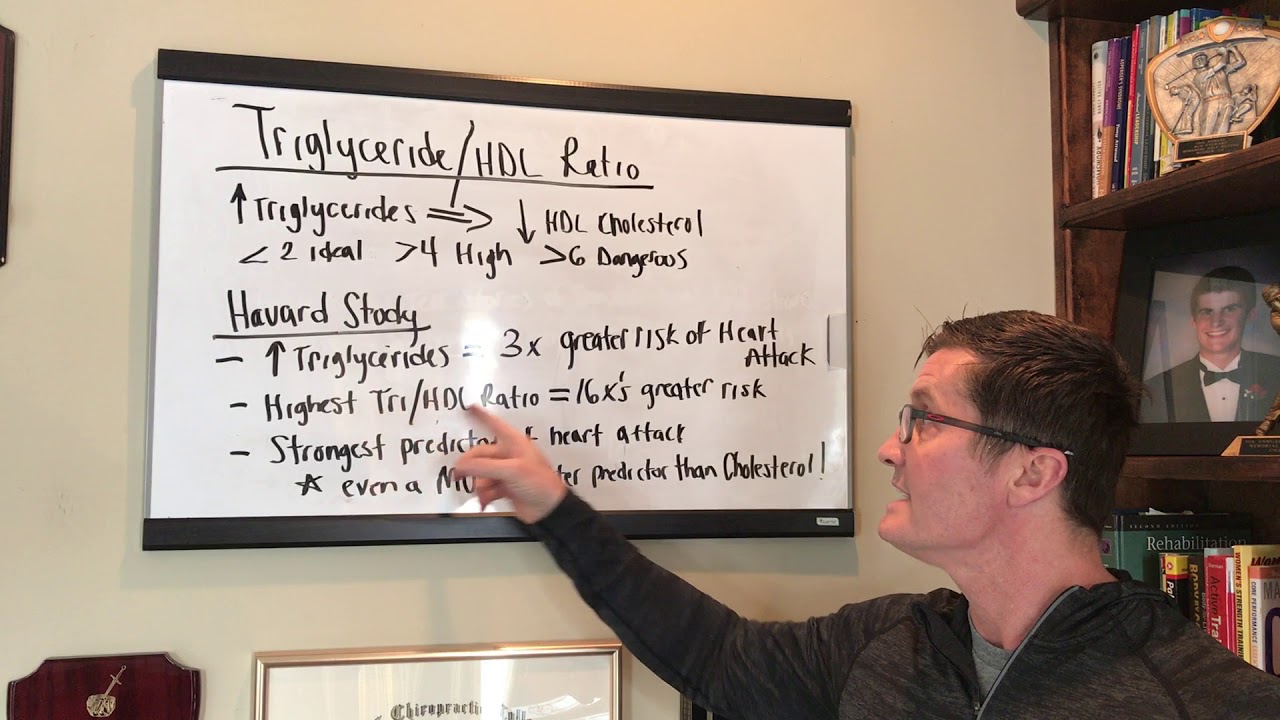 Triglyceride/HDL Ratio
↑ Triglycerides ⇒ ↓ HDL Cholesterol
< 2 ideal >4 High >6 Dangerous
Havard Stody
- ↑ Triglycerides = 3x greater risk of Heart
Attack
- Highest Tri/HDL Ratio = 16x's greater risk
- Strongest predictor heart attack
☆ even a predictor than Cholesterol!
Chiropractic
SECOND EDITION
Rehabilitation
WOMEN'S STRENGTH TRAINING
CORE PERFORMANCE